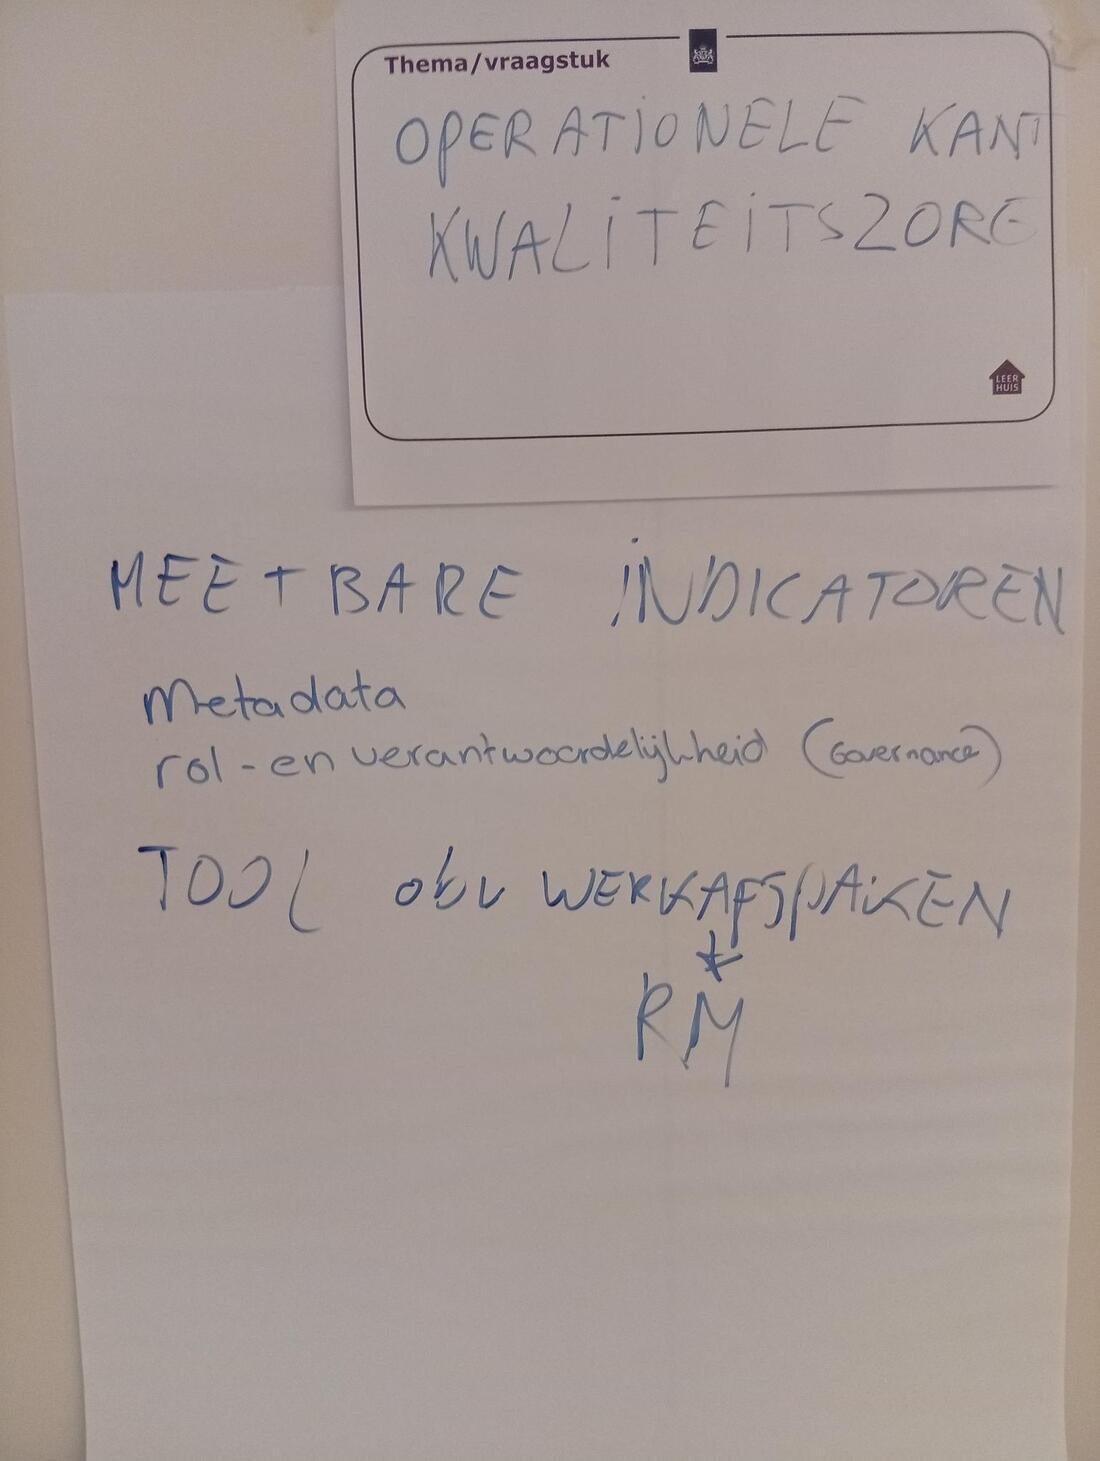 Thema/vraagstuk
OPERATIONELE KANT
KWALITEITSZORG
LEER
HUIS
MEETBARE INDICATOREN
Metadata
rol-en verantwoordelijkheid (Governance)
TOOL obv WERKAFSPRAKEN
RM